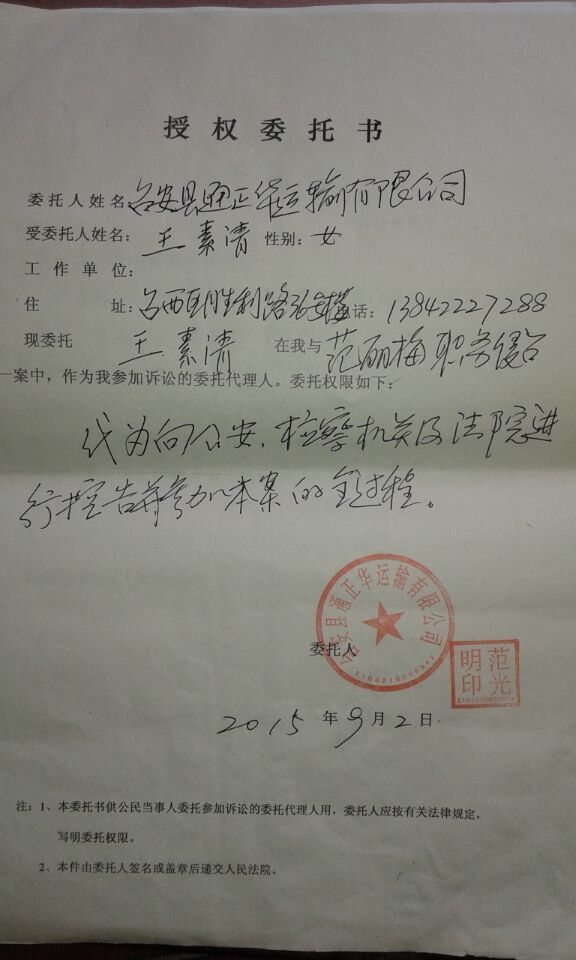 授权委托书
委托人姓名:台安县通正华运输有限公司
受委托人姓名: 王素清 性别: 女
工作单位:
住 址: 台西区胜利路 话: 13842227288
现委托 王素清 在我与 范丽梅职务侵占
一案中，作为我参加诉讼的委托代理人。委托权限如下:
代为向公安、检察机关及法院进
行控告并参加本案的全过程。
台安县通正华运输有限公司
2103210005942
委托人
范光明印
2015年9月2日
注: 1、本委托书供公民当事人委托参加诉讼的委托代理人用，委托人应按有关法律规定，
写明委托权限。
2、本件由委托人签名或盖章后递交人民法院。